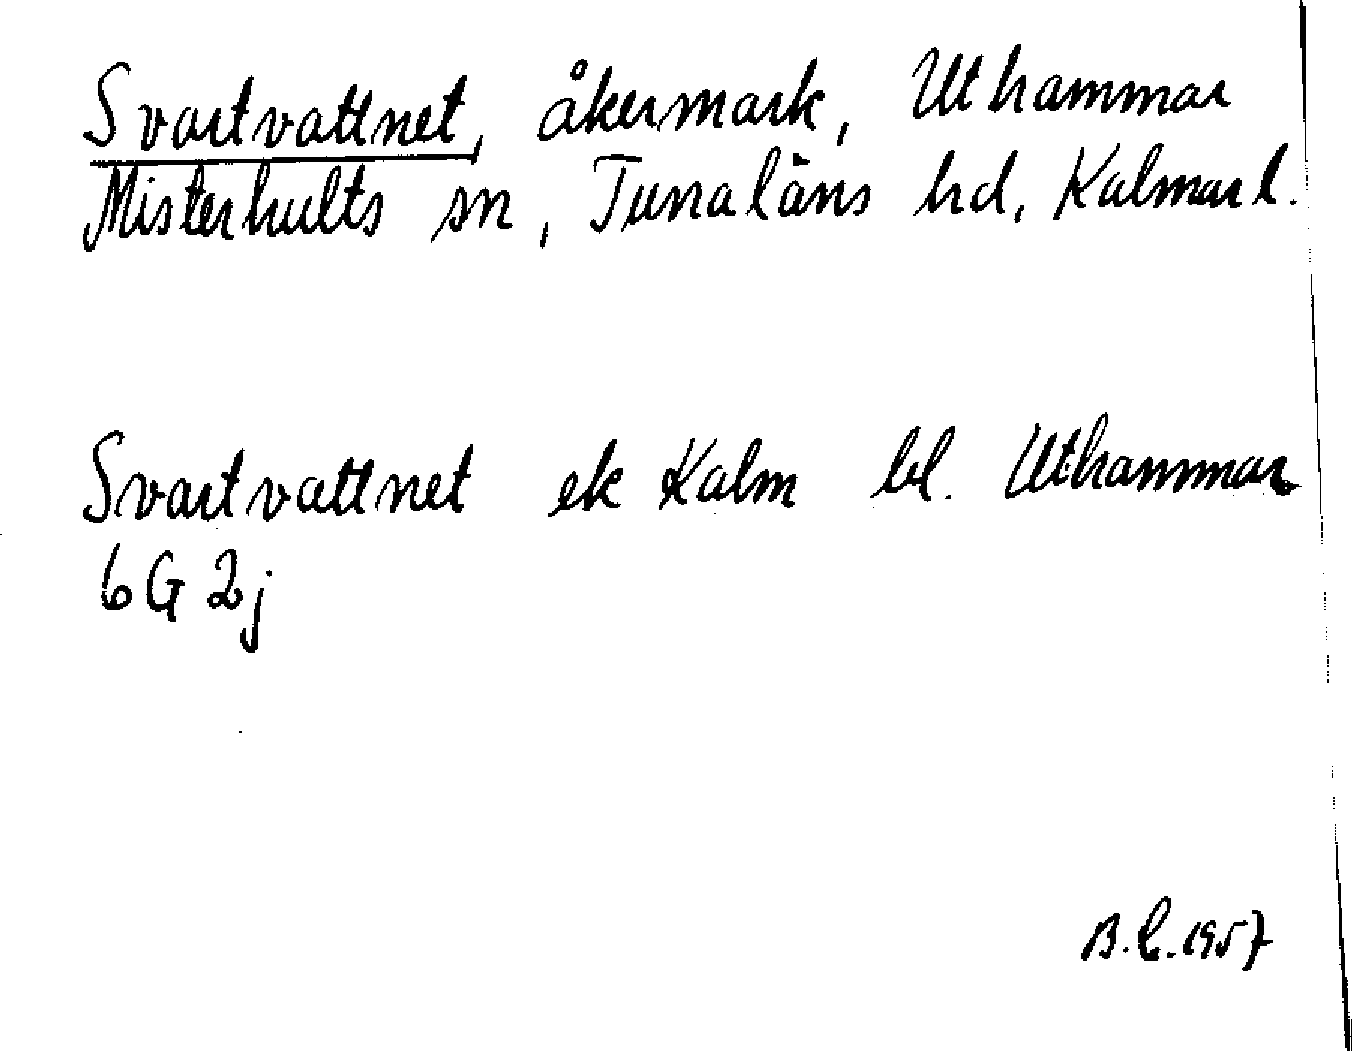 Svartvattnet, åkermark, Uthammar
Misterhults sn, Tunaläns hd, Kalmar l.
Svartvattnet ek Kalm bl. Uthammar
6G 2j
B.L. 1957